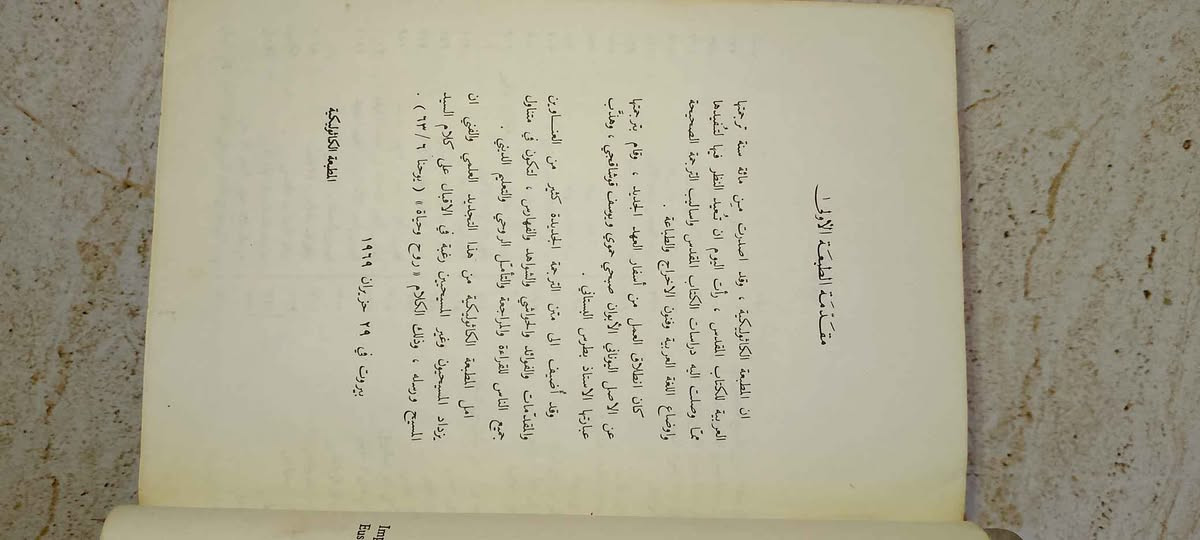 مقدّمة الطبعة الأولى
ان المطبعة الكاثوليكية ، وقد اصدرت منذ مائة سنة ترجمتها
العربية للكتاب المقدس ، رأت اليوم ان تُعيد النظر فيها لتُفيدها
ممّا وصلت اليه دراسات الكتاب المقدس واساليب الترجمة الصحيحة
واوضاع اللغة العربية وفنون الاخراج والطباعة .
كان انطلاق العمل من أسفار العهد الجديد ، وقام بترجمتها
عن الاصل اليوناني الأبوان صبحي حموي ويوسف قوشاقجي ، وهذّب
عبارتها الاستاذ بطرس البستاني .
وقد أُضيف الى متن الترجمة الجديدة كثير من العناوين
والمقدّمات والفوائد والحواشي والشواهد والفهارس ، لتكون في متناول
جميع الناس للقراءة والمراجعة والتأمّل الروحي والتعليم الديني .
امل المطبعة الكاثوليكية من هذا التجديد العلمي والفني ان
يزداد المسيحيون وغير المسيحيين رغبة في الاقبال على كلام السيد
المسيح ورسله ، وذلك الكلام « روح وحياة » ( يوحنا ٦ / ٦٣ ) .
بيروت في ٢٩ حزيران ١٩٦٩
المطبعة الكاثوليكية
Imp
Eus